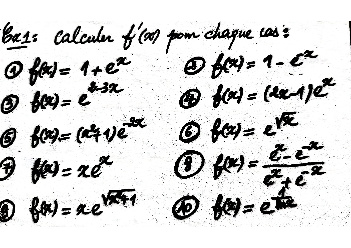 Ex1: calculer f'(x) pour chaque cas:
① f(x) = 1 + e^x ② f(x) = 1 - e^x
③ f(x) = e^{2-3x} ④ f(x) = (2x-1)e^x
⑤ f(x) = (x²+1)e^{-2x} ⑥ f(x) = e^{√x}
⑦ f(x) = xe^x ⑧ f(x) = \frac{e^x - e^{-x}}{e^x + e^{-x}}
⑨ f(x) = x·e^{√(x²+1)} ⑩ f(x) = e